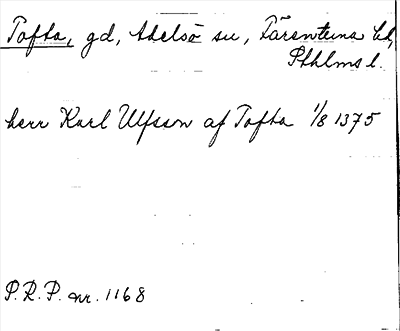 Tofta, gd, Adelsö sn, Färentuna hd,
Sthlms l.
herr Karl Ulfsson af Tofta 1/8 1375
P.R.P. nr. 1168